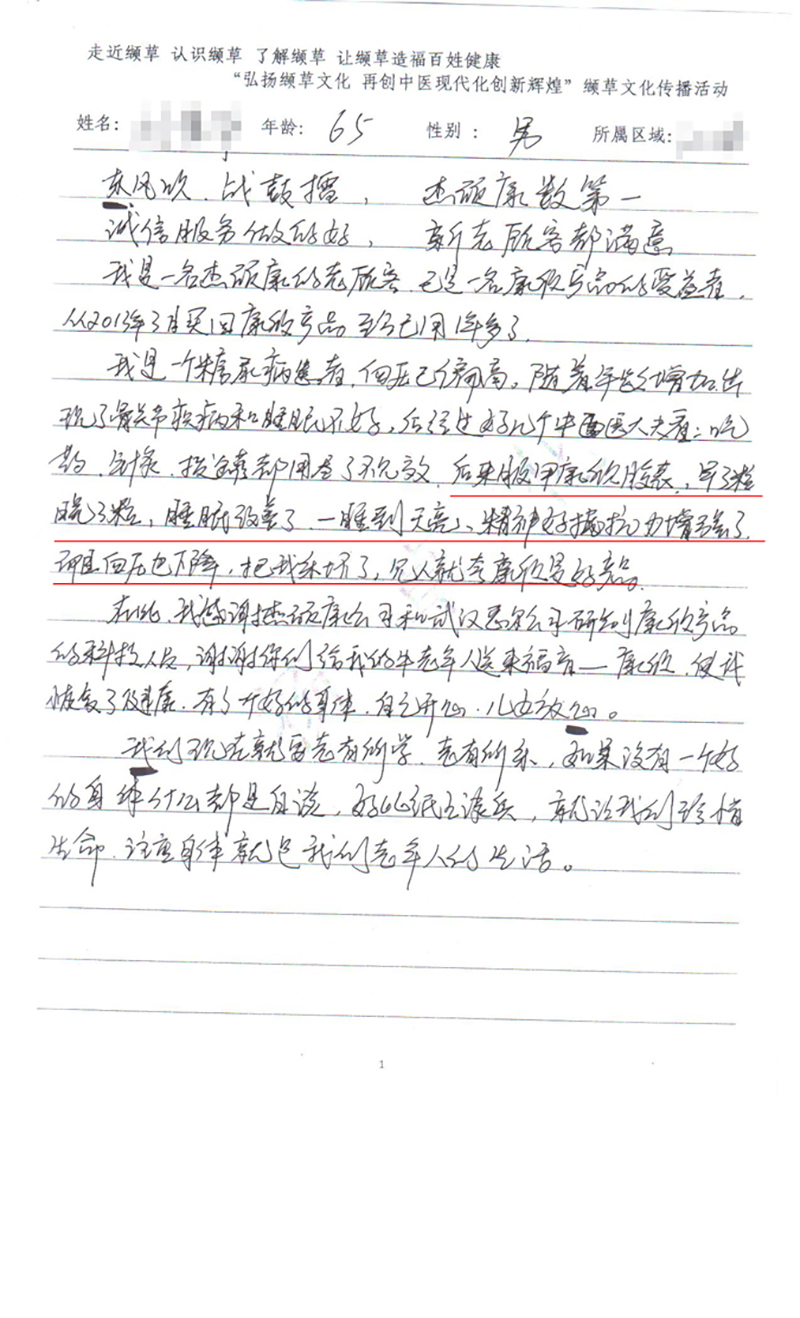 走近缬草 认识缬草 了解缬草 让缬草造福百姓健康
“弘扬缬草文化 再创中医现代化创新辉煌”缬草文化传播活动
姓名: 年龄: 65 性别: 男 所属区域:
东风吹、战鼓擂, 杰硕康数第一
诚信服务做的好, 新老顾客都满意
我是一名杰硕康的老顾客,已是一名康欣产品的受益者,
从2013年3月买回康欣产品至今已用1年多了.
我是一个糖尿病患者,血压已偏高。随着年龄增加出
现了骨关节疾病和睡眠不好,后经过好几个中西医大夫看:吃
药、针灸、拔罐都用了不见效.后来服用康欣胶囊,早3粒
晚3粒,睡眠改善了、一睡到天亮、精神好抵抗力增强了.
而且血压也下降,把我乐坏了,见人就夸康欣是好产品。
在此,我感谢杰硕康公司和武汉思尔公司研制康欣产品
的科技人员,谢谢你们给我的中老年人送来福音—康欣.使我
恢复了健康.有了个好的身体,自己开心、儿女放心。
我们现在就需老有所学、老有所乐,如果没有一个好
的身体什么都是白谈,好比纸上谈兵,就让我们珍惜
生命、注重身体就是我们老年人的生活。
1